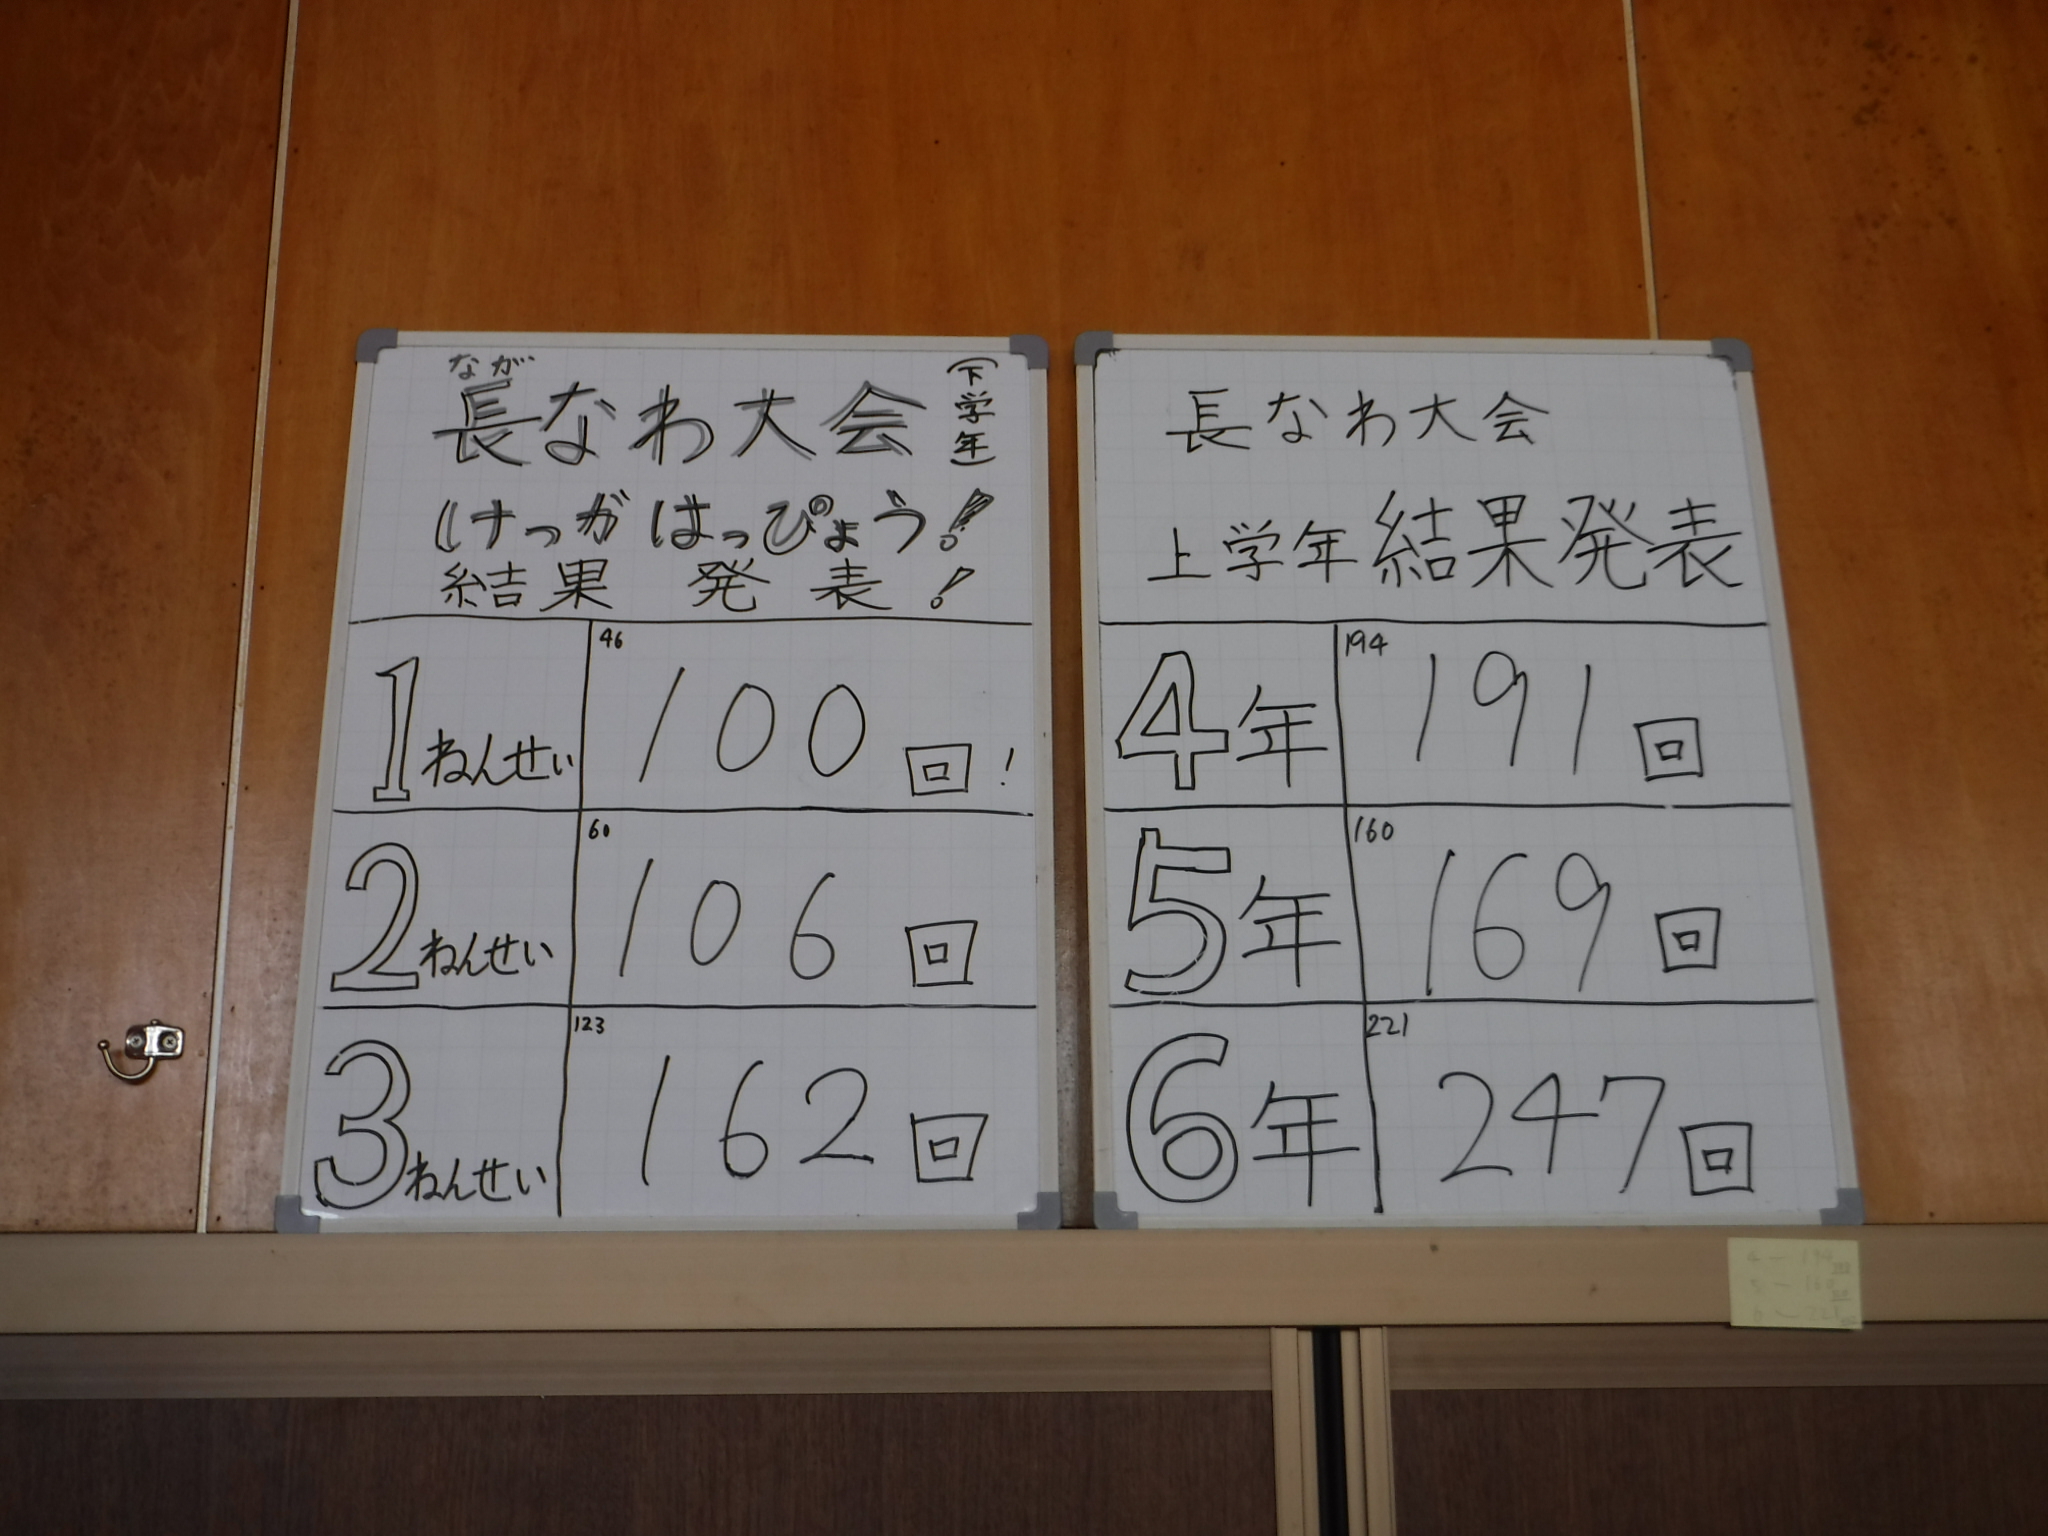 なが
長なわ大会
(下学年)
けっがはっぴょう!
結果 発表!
1ねんせい
46
100回!
2ねんせい
60
106回
3ねんせい
123
162回
長なわ大会
上学年結果発表
4年
194
191回
5年
160
169回
6年
221
247回